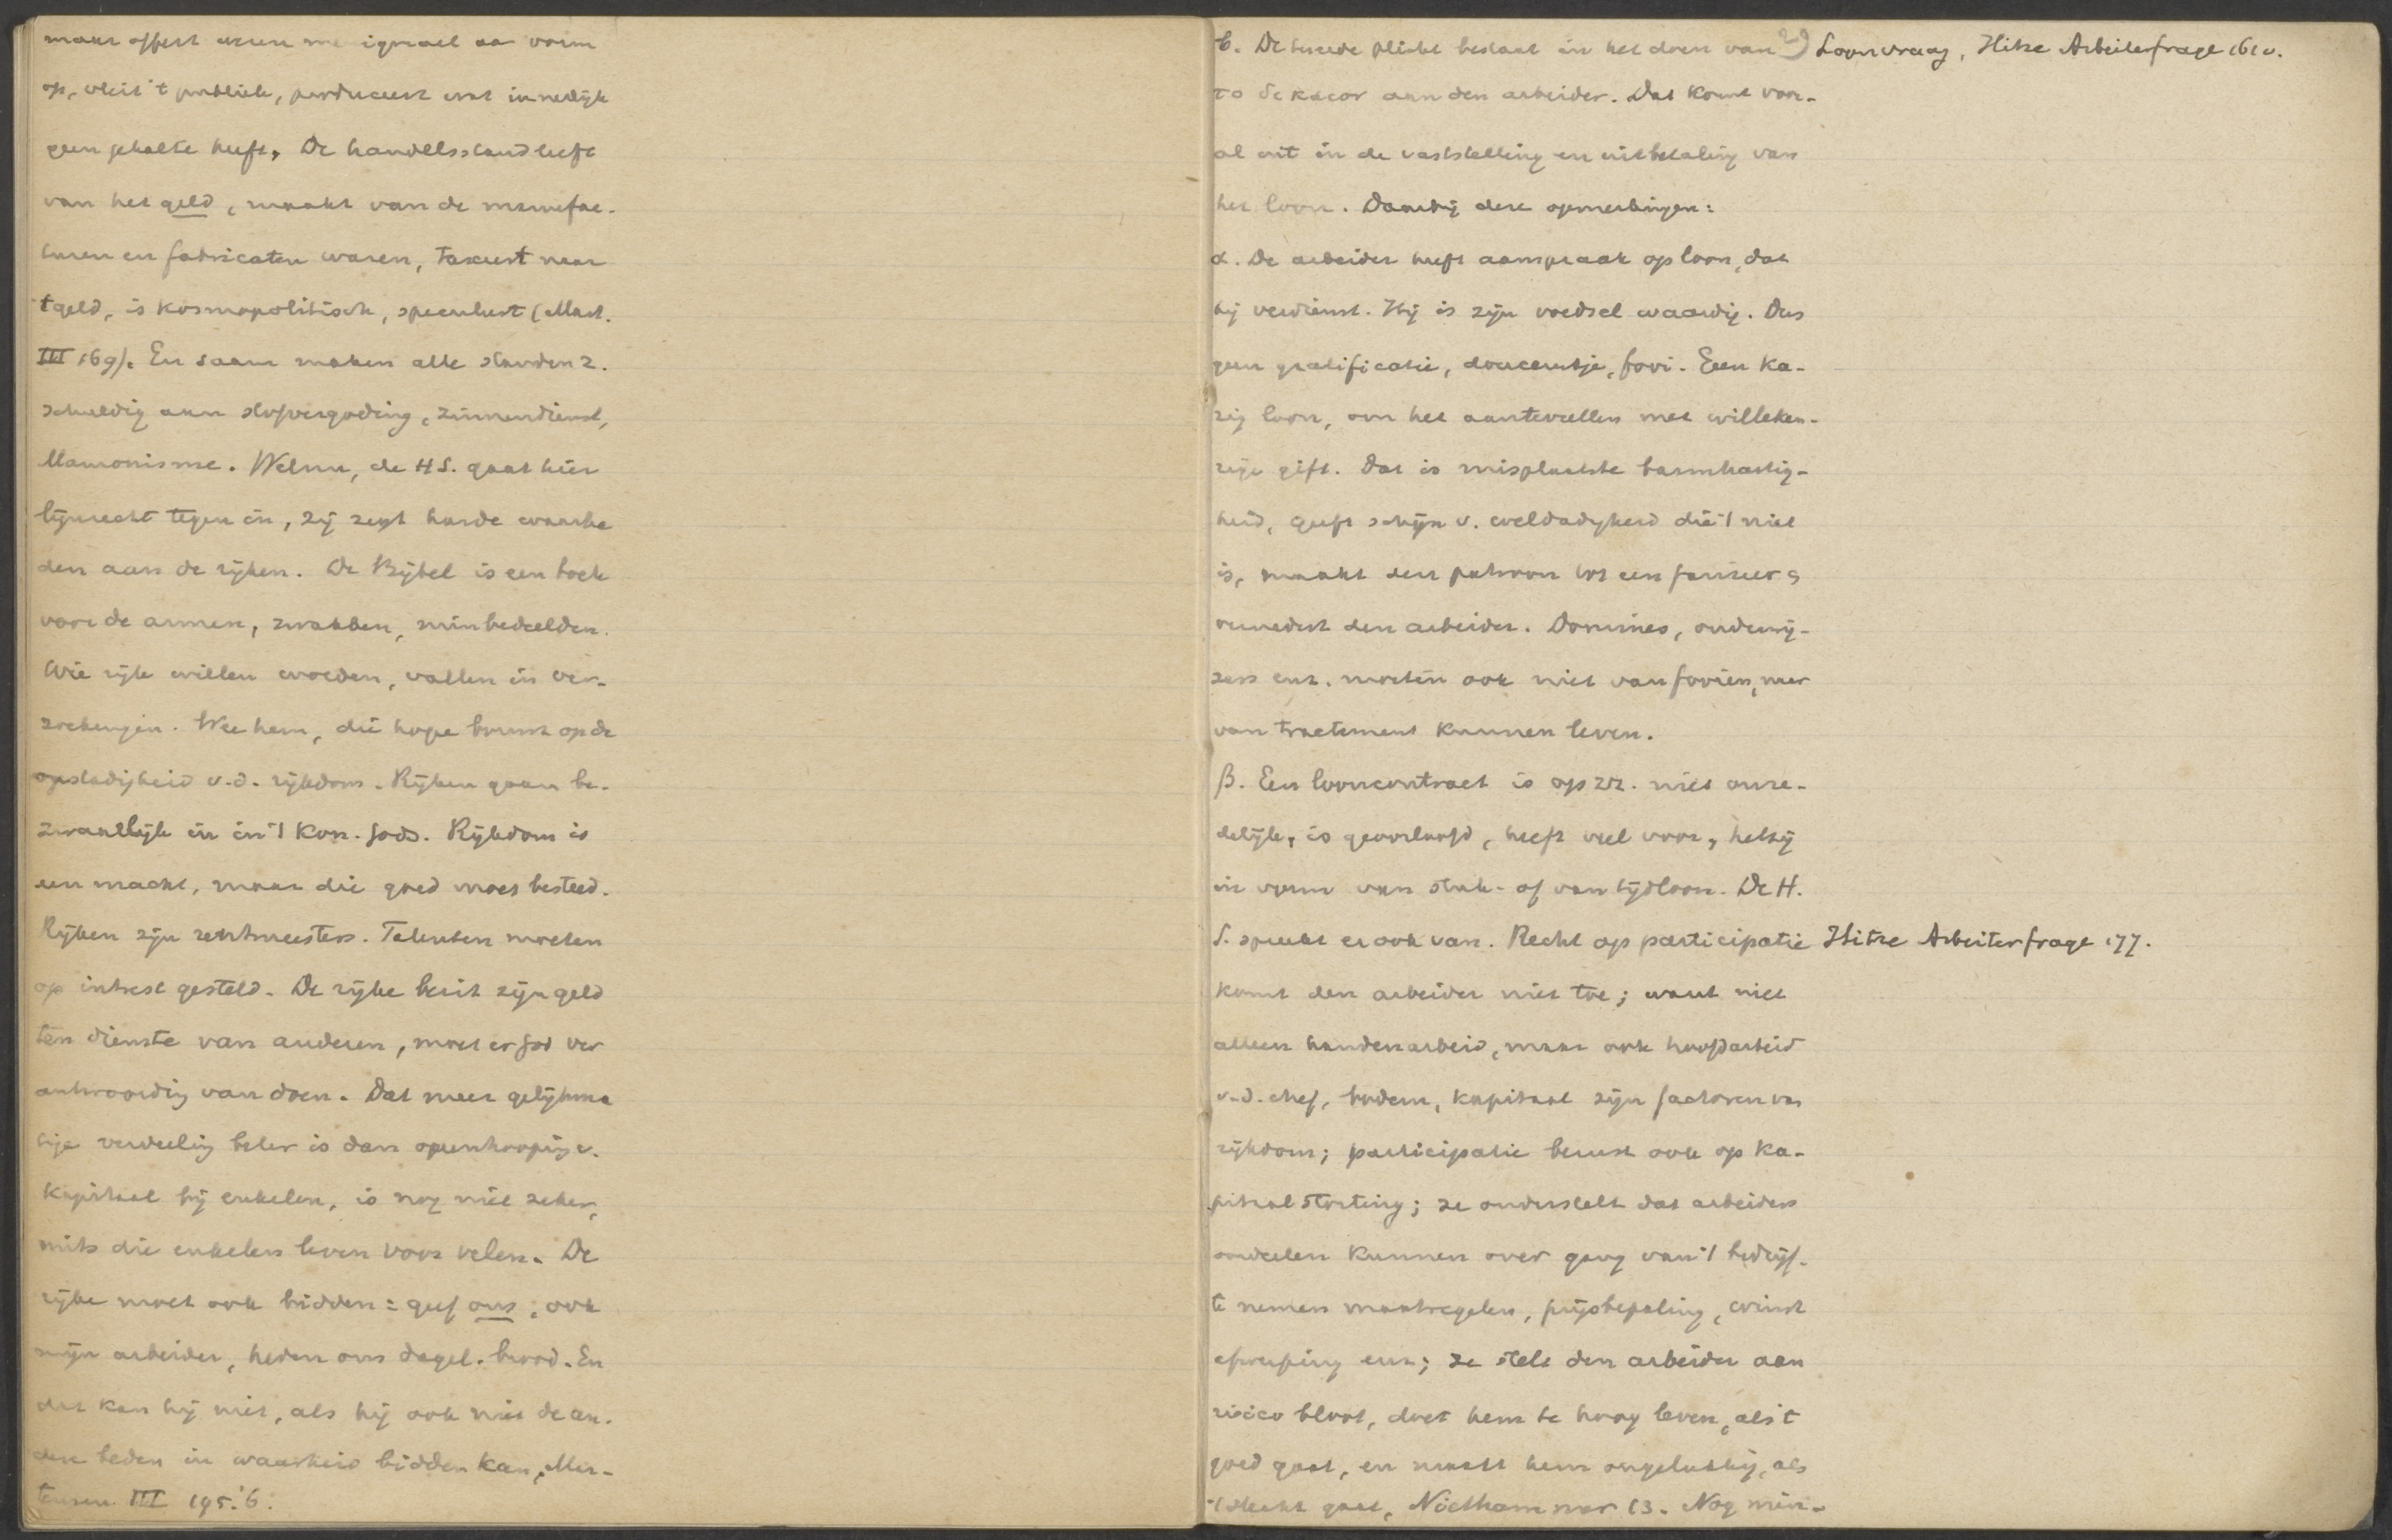 maar offert wezen me ignael aa vorm
op, vleit 't publiek, produceert wat innerlijk
geen gehalte heeft. De handelsstand leeft
van het geld, maakt van de manufac-
turen en fabricaten waren, taxeert naar
't geld, is kosmopolitisch, speculeert (Mart.
III 169). En saam maken alle standen z.
schuldig aan stofvergoding, zinnendienst,
Mamonisme. Welnu, de H S. gaat hier
lijnrecht tegen in, zij zegt harde waarhe
den aan de rijken. De Bijbel is een boek
voor de armen, zwakken, minbedeelden.
Wie rijk willen worden, vallen in ver-
zoekingen. Wee hem, die hope bouwt op de
ongestadigheid v.d. rijkdom. Rijken gaan be-
zwaarlijk in in 't Kon. Gods. Rijkdom is
een macht, maar die goed moet besteed.
Rijken zijn rentmeesters. Talenten moeten
op intrest gesteld. De rijke bezit zijn geld
ten dienste van anderen, moet er God ver
antwoording van doen. Dat meer gelijkma
tige verdeeling beter is dan opeenhooping v.
kapitaal bij enkelen, is nog niet zeker,
mits die enkelen leven voor velen. De
rijke moet ook bidden: geef ons, ook
mijn arbeider, heden ons dagel. brood. En
dat kan hij niet, als hij ook niet de an-
dere beden in waarheid bidden kan, Mar-
tensen III 195.'6.
b. De tweede plicht bestaat in het doen van 2) Loonvraag, Hitze Arbeiterfrage 161 v.
το δικαιον aan den arbeider. Dat komt voor-
al uit in de vaststelling en uitbetaling van
het loon. Daarbij deze opmerkingen:
α. De arbeider heeft aanspraak op loon, dat
hij verdient. Hij is zijn voedsel waardig. Dus
geen gratificatie, douceurtje, fooi. Een ka-
rig loon, om het aantevullen met willekeu-
rige gift. Dat is misplaatste barmhartig-
heid, geeft schijn v. weldadigheid die 't niet
is, maakt den patroon tot een farizeer &
vernedert den arbeider. Dominés, onderwij-
zers enz. moeten ook niet van fooien, maar
van tractement kunnen leven.
β. Een looncontract is op zz. niet onre-
delijk, is geoorloofd, heeft veel voor, hetzij
in vorm van stuk- of van tijdloon. De H.
S. spreekt er ook van. Recht op participatie Hitze Arbeiterfrage 177.
komt den arbeider niet toe; want niet
alleen handenarbeid, maar ook hoofdarbeid
v.d. chef, bodem, kapitaal zijn factoren van
rijkdom; participatie berust ook op ka-
pitaalstorting; ze onderstelt dat arbeiders
oordeelen kunnen over gang van 't bedrijf,
te nemen maatregelen, prijsbepaling, winst
afwerping enz; ze stelt den arbeider aan
risico bloot, doet hem te hoog leven, als 't
goed gaat, en maakt hem ongelukkig, als
't slecht gaat, Niethammer 13. Nog min-